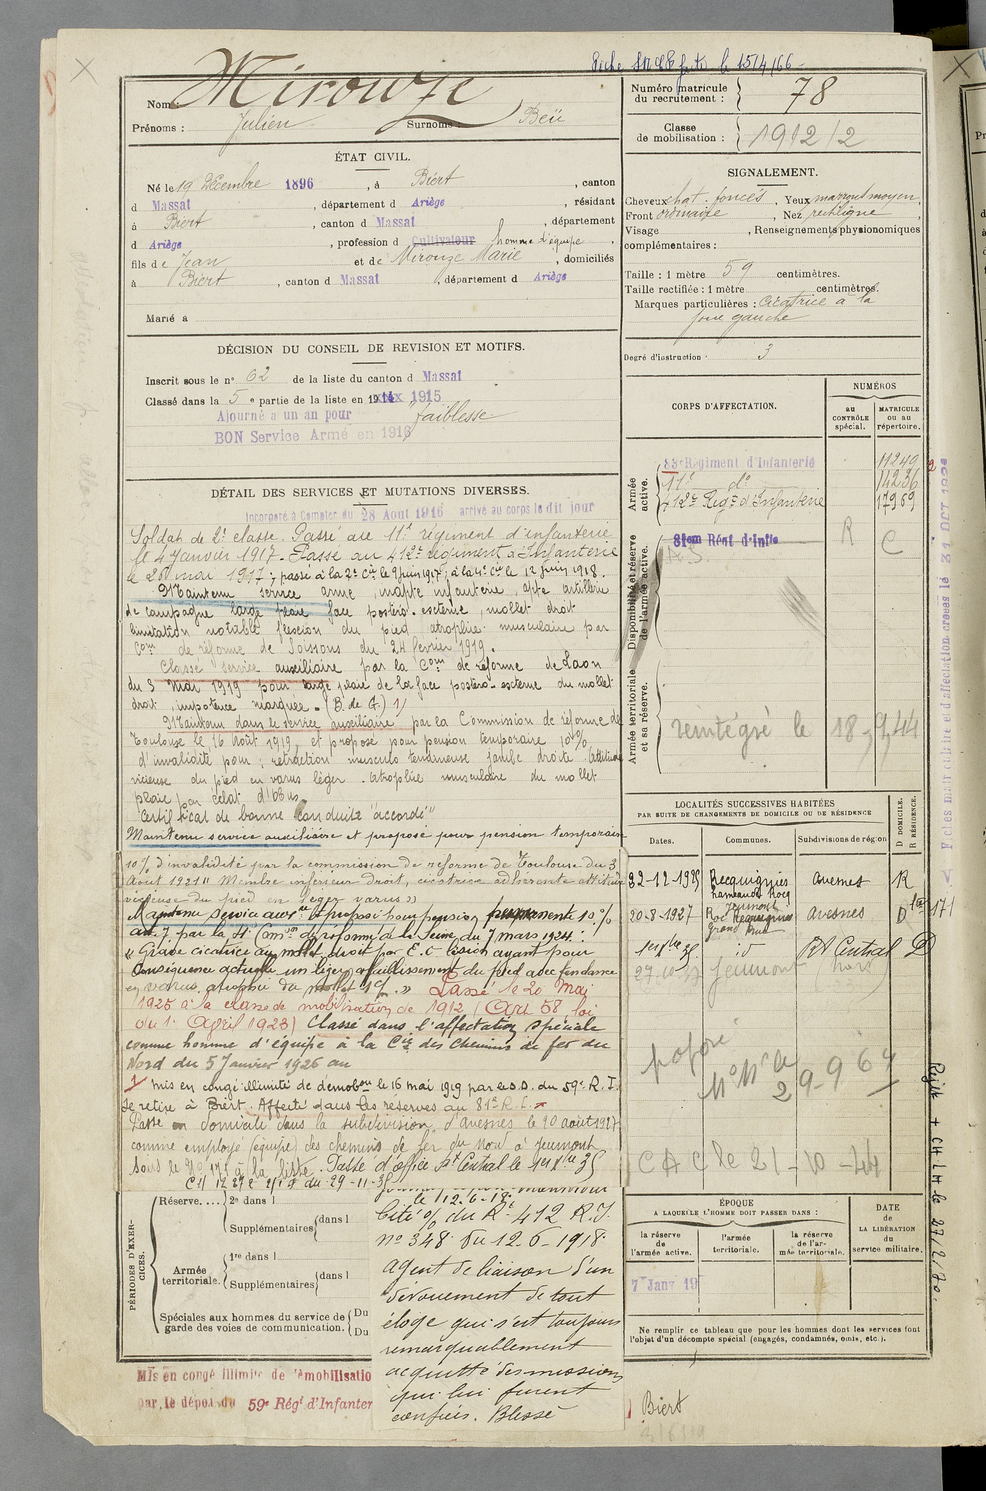 Fiche faite le 15/4/66
Nom : Mirouze
Prénoms : Julien Surnoms : Beü
ÉTAT CIVIL.
Né le 19 Décembre 1896, à Biert, canton
d Massat, département d Ariège, résidant
à Biert, canton d Massat, département
d Ariège, profession d Cultivateur homme d'équipe,
fils de Jean et de Mirouze Marie, domiciliés
à Biert, canton d Massat, département d Ariège
Marié à
DÉCISION DU CONSEIL DE REVISION ET MOTIFS.
Inscrit sous le n° 62 de la liste du canton d Massat
Classé dans la 5 e partie de la liste en 1915
Ajourné a un an pour faiblesse
BON Service Armé en 1916
DÉTAIL DES SERVICES ET MUTATIONS DIVERSES.
Incorporé à Compter du 28 Aout 1916 arrivé au corps le dit jour
Soldat de 2e classe. Passé au 11e régiment d'infanterie
le 4 Janvier 1917. Passé au 412e régiment d'Infanterie
le 20 mai 1917; passé à la 2e Cie le 9 juin 1917; à la 4e Cie le 12 juin 1918.
Maintenu service armé, inapte infanterie, apte artillerie
de campagne large plaie face postéro-externe, mollet droit
limitation notable flexion du pied atrophie musculaire par
Com de réforme de Soissons du 24 février 1919.
Classé service auxiliaire par la Com de réforme de Laon
du 3 Mai 1919 pour large plaie de la face postéro-externe du mollet
droit, impotence marquée. (B. de G.) 1/
Maintenu dans le service auxiliaire par la Commission de réforme de
Toulouse le 16 Août 1919, et proposé pour pension temporaire 10%
d'invalidité pour; rétraction musculo tendineuse jambe droite. Attitude
vicieuse du pied en varus léger. Atrophie musculaire du mollet
plaie par éclat d'obus
"Certificat de bonne conduite "accordé"
Maintenu service auxiliaire et proposé pour pension temporaire
10% d'invalidité par la commission de réforme de Toulouse du 3
Août 1921 " Membre inférieur droit, cicatrice adhérente attitude
vicieuse du pied en léger varus »
Maintenu service auxre et proposé pour pension permanente 10%
par la 4e Comon de réforme de la Seine du 7 mars 1924 :
« Grave cicatrice au mollet droit par E. O. lésion ayant pour
conséquence actuelle un léger affaiblissement du pied avec tendance
en varus, atrophie du mollet 1 c/. » Passé le 20 Mai
1925 à la classe de mobilisation de 1912 (Art 58 loi
du 1er April 1923) Classé dans l'affectation spéciale
comme homme d'équipe à la Cie des Chemins de fer du
Nord du 5 Janvier 1926 au
1/ mis en congé illimité de démobon le 16 mai 1919 par le D.D. du 59e R.I.
se retire à Biert. Affecté dans les réserves au 81e R.I.
Passé en domicile dans la subdivision d'Avesnes le 20 août 1927
comme employé (équipe) des chemins de fer du Nord à Jeumont
sous le No 171 à la liste. Passé d'office Rt Central le 1er 8bre 35
du 29-11-35
le 12-6-18.
Cité % du Rt 412 R.I.
no 348 du 12-6-1918.
agent de liaison d'un
dévouement de tout
éloge qui s'est toujours
remarquablement
acquitté des missions
qui lui furent
confiées. Blessé
PÉRIODES D'EXERCICES.
Réserve.... 2e dans l
Supplémentaires dans l
Armée territoriale. 1re dans l
Supplémentaires dans l
Spéciales aux hommes du service de garde des voies de communication. Du
Du
Mis en congé illimité de démobilisatio
par le dépot du 59e Régt d'Infanter
Numéro matricule du recrutement : 78
Classe de mobilisation : 1912/2
SIGNALEMENT.
Cheveux chat. foncés, Yeux marron moyen,
Front ordinaire, Nez rectiligne,
Visage , Renseignements physionomiques
complémentaires :
Taille : 1 mètre 59 centimètres.
Taille rectifiée : 1 mètre centimètres.
Marques particulières : cicatrice à la
joue gauche
Degré d'instruction : 3
CORPS D'AFFECTATION.
NUMÉROS
AU CONTRÔLE spécial.
MATRICULE ou au répertoire.
Armée active.
83e Régiment d'Infanterie 11249
11e do 14236
412e Régt d'Infanterie 17969
Disponibilité et réserve de l'armée active.
81em Régt d'Infie R C
A.S.
Armée territoriale et sa réserve.
réintégré le 18-9-44
LOCALITÉS SUCCESSIVES HABITÉES
PAR SUITE DE CHANGEMENTS DE DOMICILE OU DE RÉSIDENCE
Dates. Communes. Subdivisions de région
D DOMICILE.
R RÉSIDENCE.
22-12-1925 Recquignies hameau de Rocq Avesnes R
20-8-1927 Jeumont Avesnes D
1er 8bre 35 id Rt Central D
Jeumont
No Mle
29-9-64
C A C le 21-10-44
ÉPOQUE
A LAQUELLE L'HOMME DOIT PASSER DANS :
la réserve de l'armée active.
l'armée territoriale.
la réserve de l'armée territoriale.
DATE de LA LIBÉRATION du service militaire.
7r Janv 19
Ne remplir ce tableau que pour les hommes dont les services font
l'objet d'un décompte spécial (engagés, condamnés, omis, etc.).
Biert